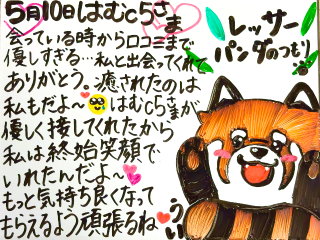 5月10日はむc5さま
会っている時から口コミまで
優しすぎる…私と出会ってくれて
ありがとう。癒されたのは
私もだよ～はむc5さまが
優しく接してくれたから
私は終始笑顔で
いれたんだよ～
もっと気持ち良くなって
もらえるよう頑張るね
レッサー
パンダのつもり
うい